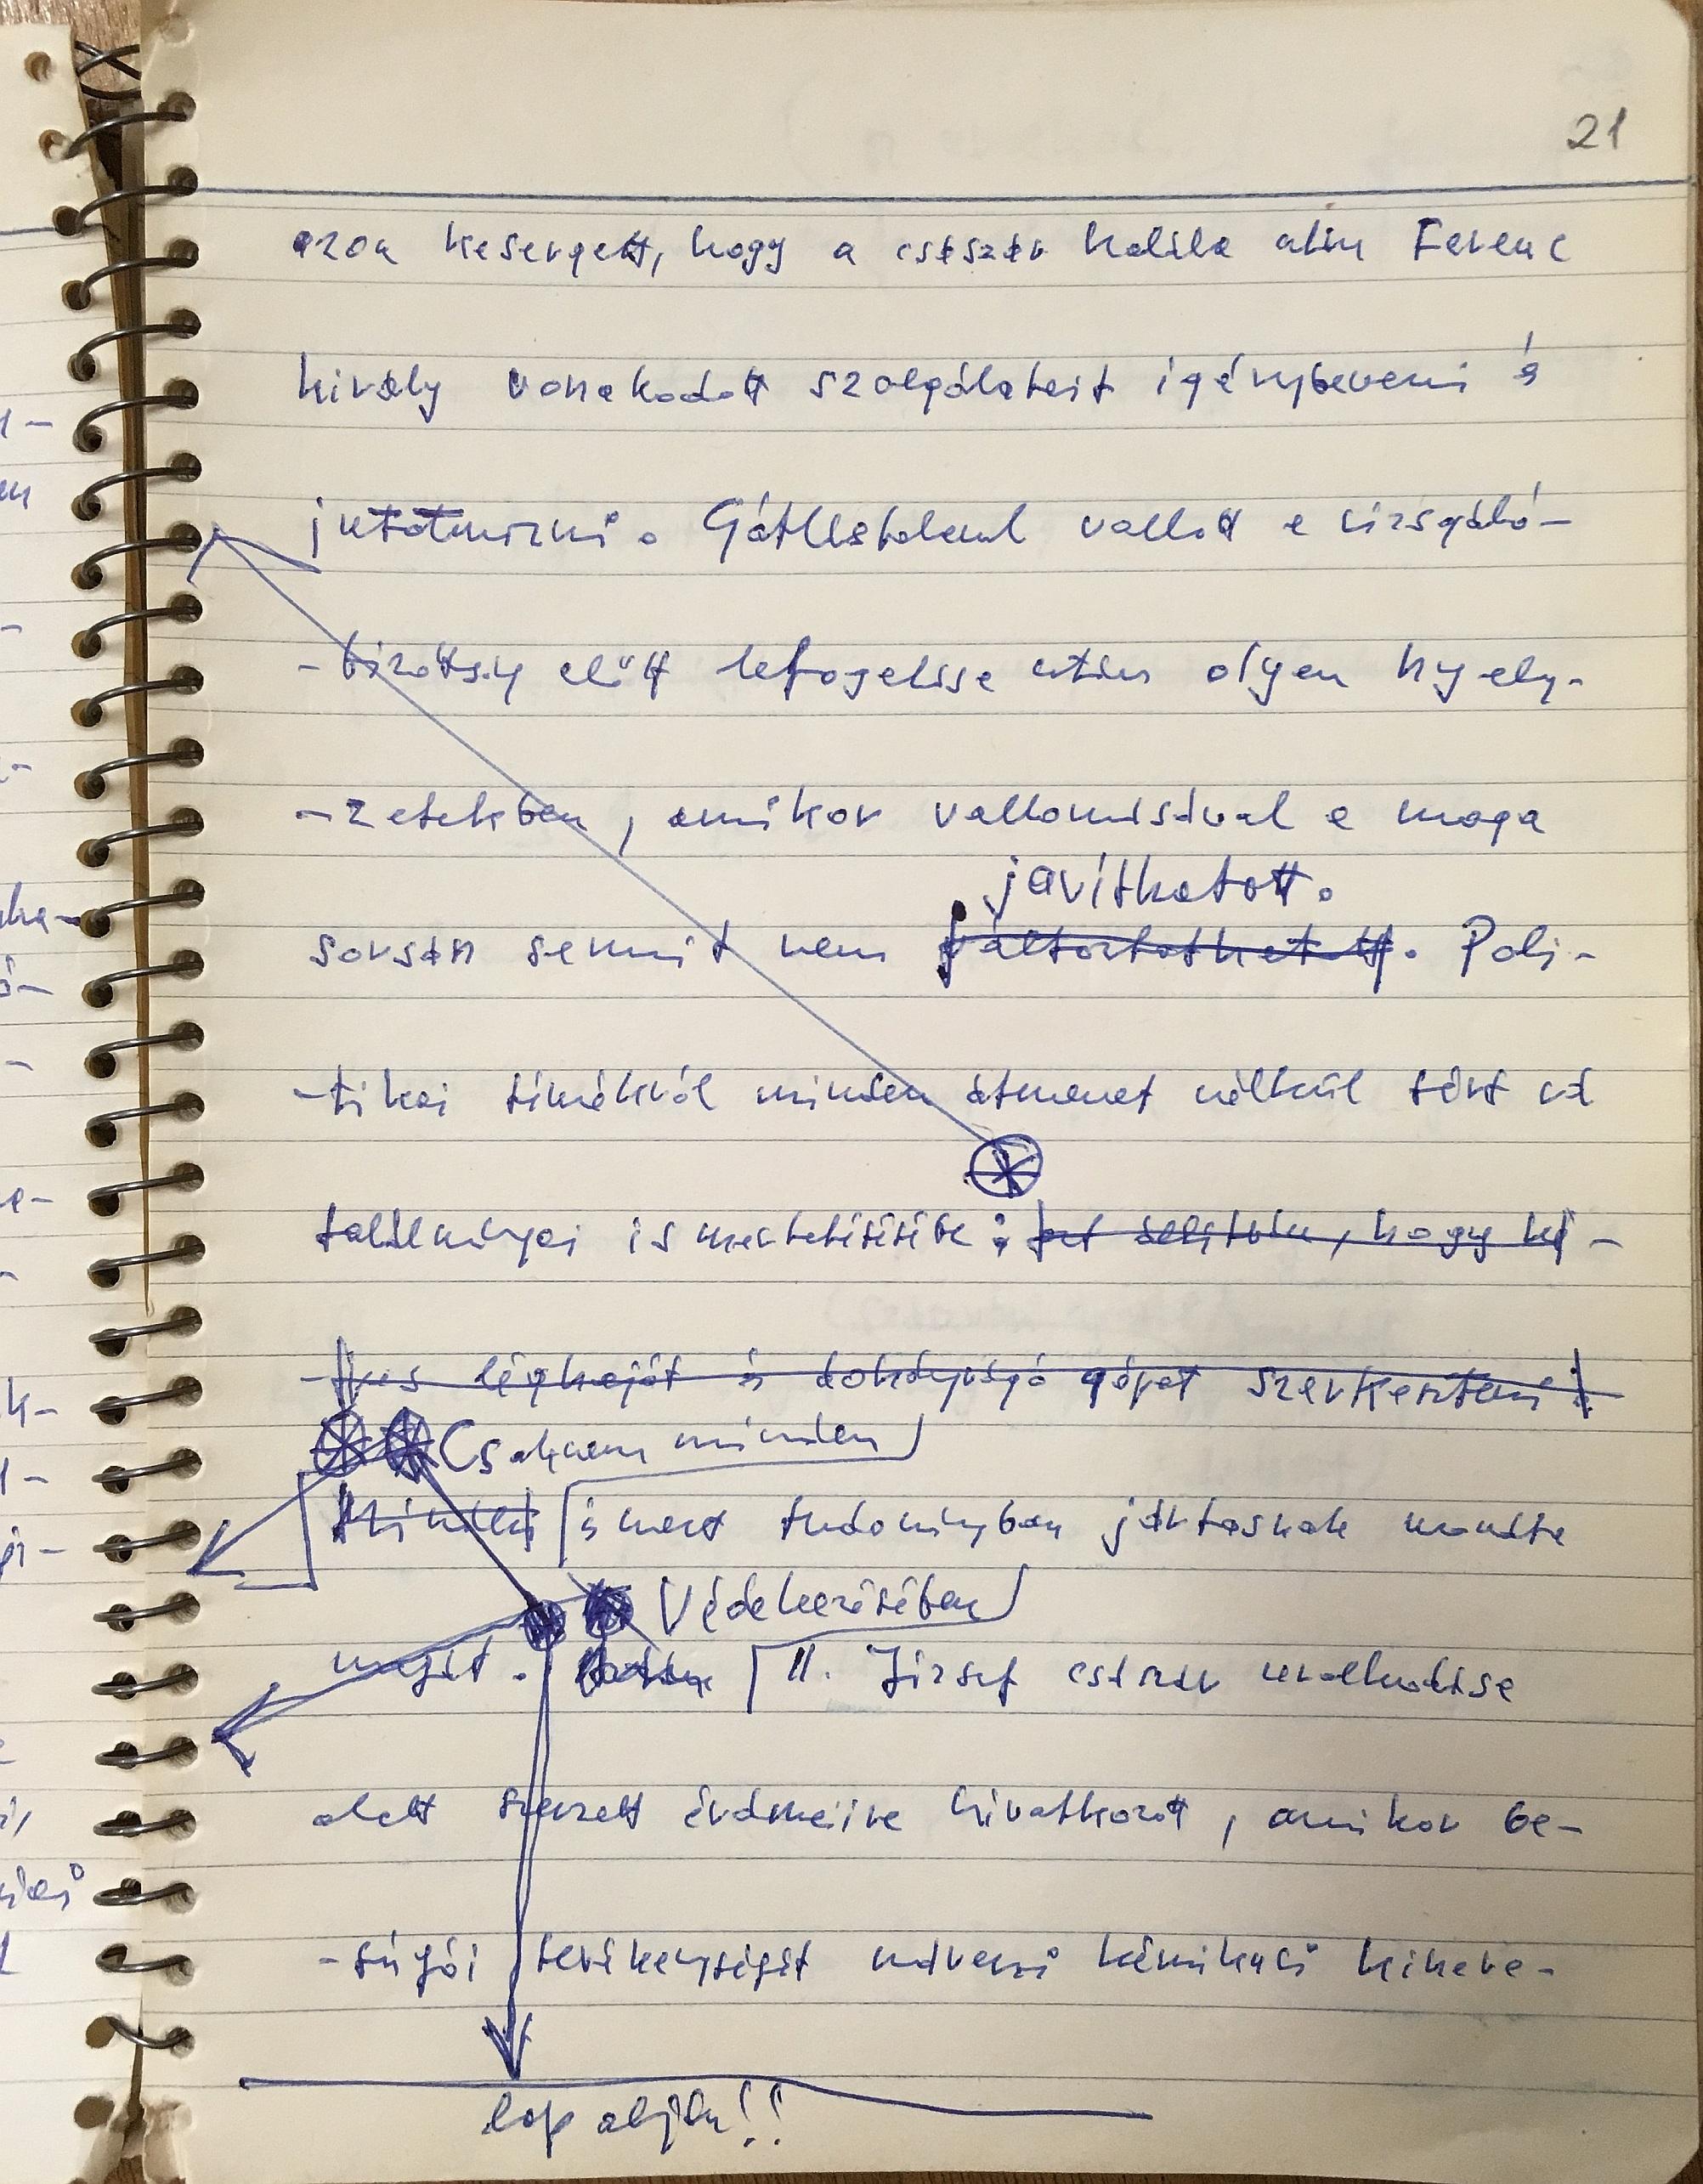 21
azon kesergett, hogy a császár halála után Ferenc
király vonakodott szolgálatait igénybevenni és
jutalmazni. Gátlástalanul vallott a vizsgáló-
-bizottság előtt lefogatása után olyan helyt-
-zetekben, amikor vallomásával a maga
javíthatott.
sorsán semmit nem változtathatott. Poli-
-tikai témákról minden átmenet nélkül tért rá
találmányai ismertetésére:
-jes léghajót és dohányvágó gépet szerkeszteni.
Csaknem minden
Minden ismert tudományban jártasnak mondta
Védekezésében
magát. II. József császár uralkodása
alatt szerzett érdemeire hivatkozott, amikor be-
-súgói tevékenységét udvari kémikusi kineve-
lap alján!!